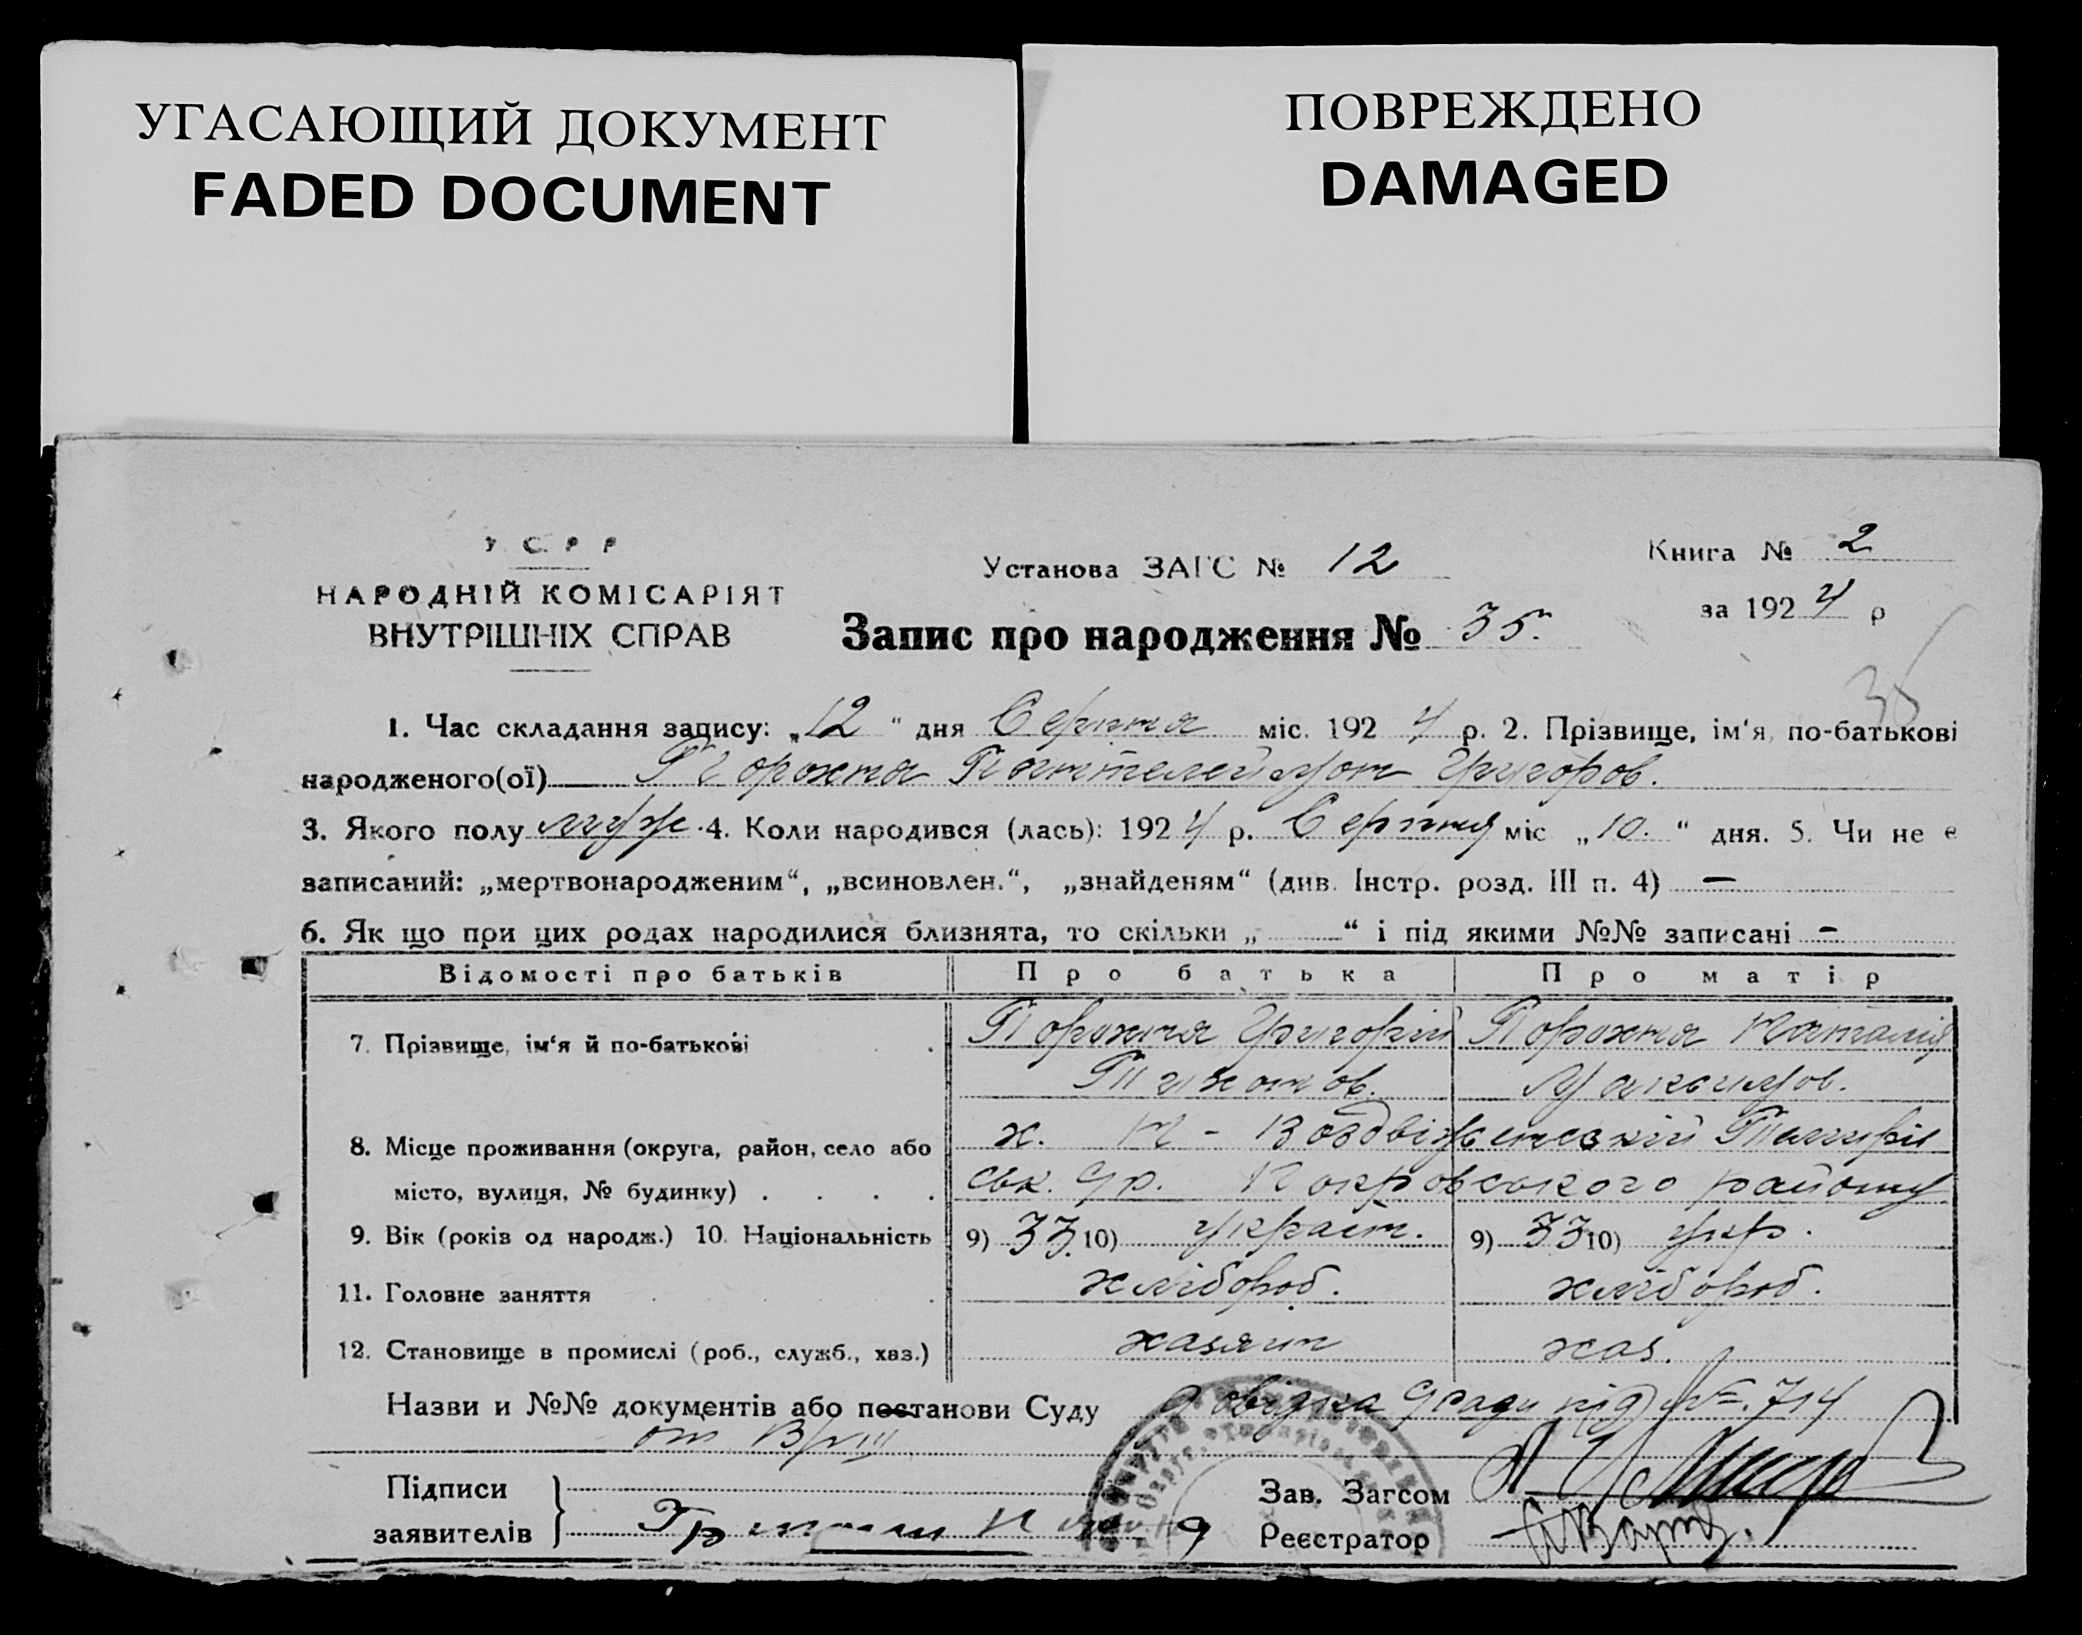 УГАСАЮЩИЙ ДОКУМЕНТ
FADED DOCUMENT
ПОВРЕЖДЕНО
DAMAGED
У. С. Р. Р.
НАРОДНІЙ КОМІСАРІЯТ
ВНУТРІШНІХ СПРАВ
Установа ЗАГС № 12
Запис про народження № 35.
Книга № 2
за 1924 р
35
1. Час складання запису: „12“ дня Серпня міс. 1924 р. 2. Прізвище, ім‘я, по-батькові
народженого(ої) Порохня Пантелеймон Григоров.
3. Якого полу муж. 4. Коли народився (лась): 1924 р. Серпня міс „10.“ дня. 5. Чи не е
записаний: „мертвонародженим“, „всиновлен.“, „знайденям“ (див. Інстр. розд. III п. 4) —
6. Як що при цих родах народилися близнята, то скільки „ “ і під якими №№ записані —
Відомості про батьків Про батька Про матір
7. Прізвище, ім‘я й по-батькові Порохня Григорій Порохня Наталія
Тихонов. Максимов.
8. Місце проживання (округа, район, село або х. Н - Воздвіженський
місто, вулиця, № будинку) Покровського району
9. Вік (років од народж.) 10. Національність 9) 33 10) україн. 9) 33 10) укр.
11. Головне заняття хлібороб. хлібороб.
12. Становище в промислі (роб., служб., хвз.) хазяин хаз.
Назви и №№ документів або постанови Суду Довідка під № 714
от
Підписи
заявителів
Зав. Загсом
Реєстратор